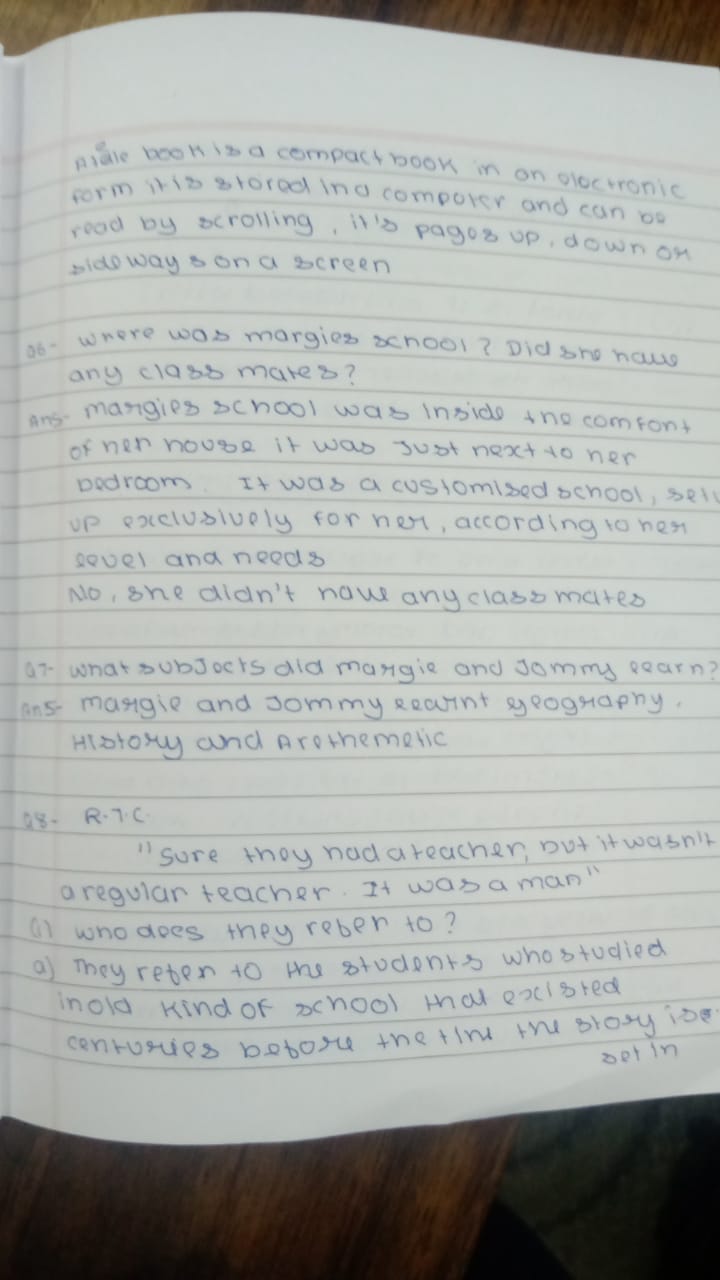 book is a compact book in an electronic
form it is stored in a computer and can be
read by scrolling, it's pages up, down or
sideways on a screen
Q6- where was margies school? Did she have
any class mates?
Ans- margies school was inside the comfort
of her house it was Just next to her
bedroom. It was a customised school, sett
up exclusively for her, according to her
level and needs
No, she didn't have any class mates
Q7- what subJects did margie and Jommy learn?
Ans- margie and Jommy learnt geography,
History and Arethemetic
Q8- R.T.C.
"Sure they had a teacher, but it wasn't
a regular teacher. It was a man"
a) who does they reber to?
a) They reber to the students who studied
in old kind of school that excisted
centuries before the time the story is
set in